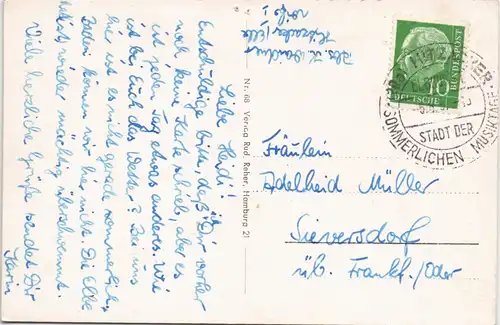 Liebe Heidi!
Entschuldige bitte, daß Dir vorher
noch keine Karte schrieb, aber es
ist jeden Tag etwas anderes. Wie
ist bei Euch das Wetter? Bei uns
hier ist es nicht gerade sommerlich.
Baden können wir hier nicht. Die Elbe
ist wieder mächtig überschwemmt.
Viele herzliche Grüße sendet Dir
Karin
Nr. 68 Ver-ca Rud. Reher, Hamburg 21
Abs. K.
Hitzacker/Elbe
DEUTSCHE
BUNDESPOST
10
HITZACKER
STADT DER
SOMMERLICHEN MUSIKTAGE
Fräulein
Adelheid Müller
Sieversdorf
üb. Frankf./Oder